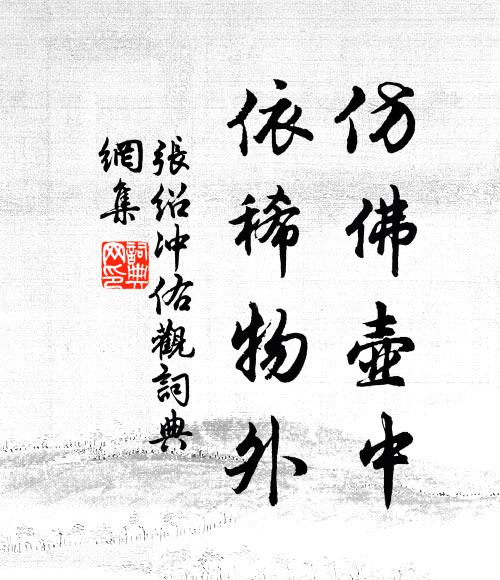 仿佛壺中
依稀物外
張紹沖佑觀詞典
網集
詞典
网印